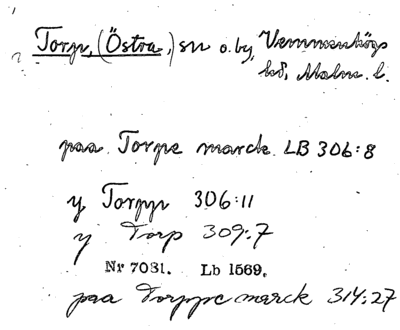 Torp, (Östra,) sn o. by, Vemmenhögs
hd, Malm. l.
paa Torpe marck LB 306:8
y Torpp 306:11
y Torp 309:7
Nr 7031. Lb 1569.
paa Torppe marck 314:27